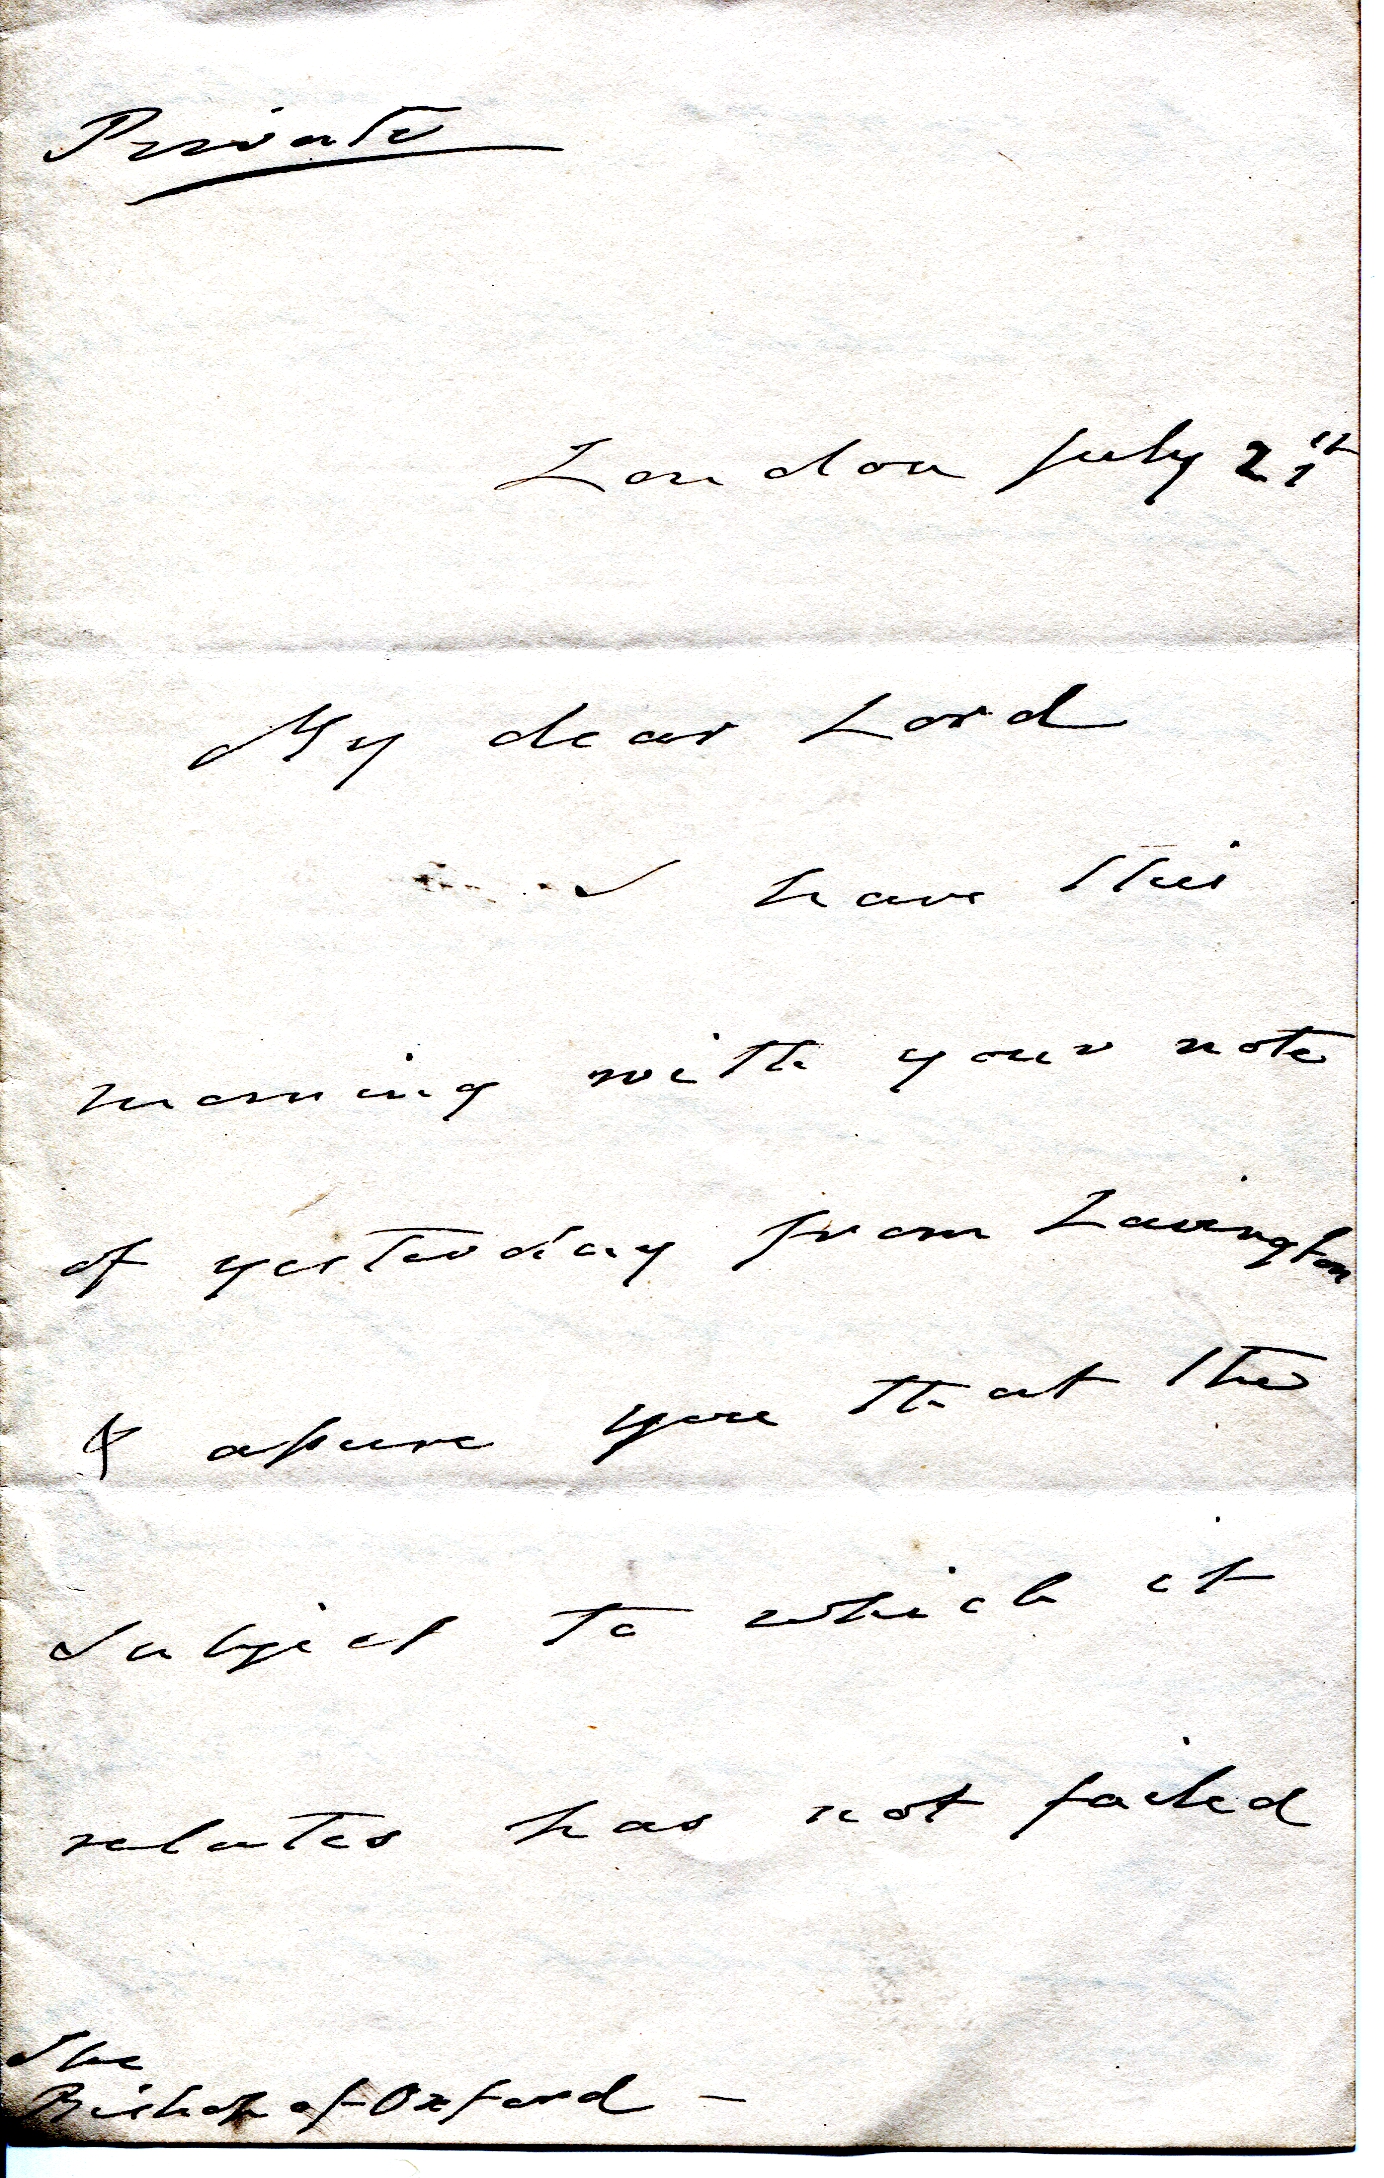 Private
London July 21st
My dear Lord
I have this
morning with your note
of yesterday from Lavington
& assure you that the
subject to which it
relates has not failed
The
Bishop of Oxford –